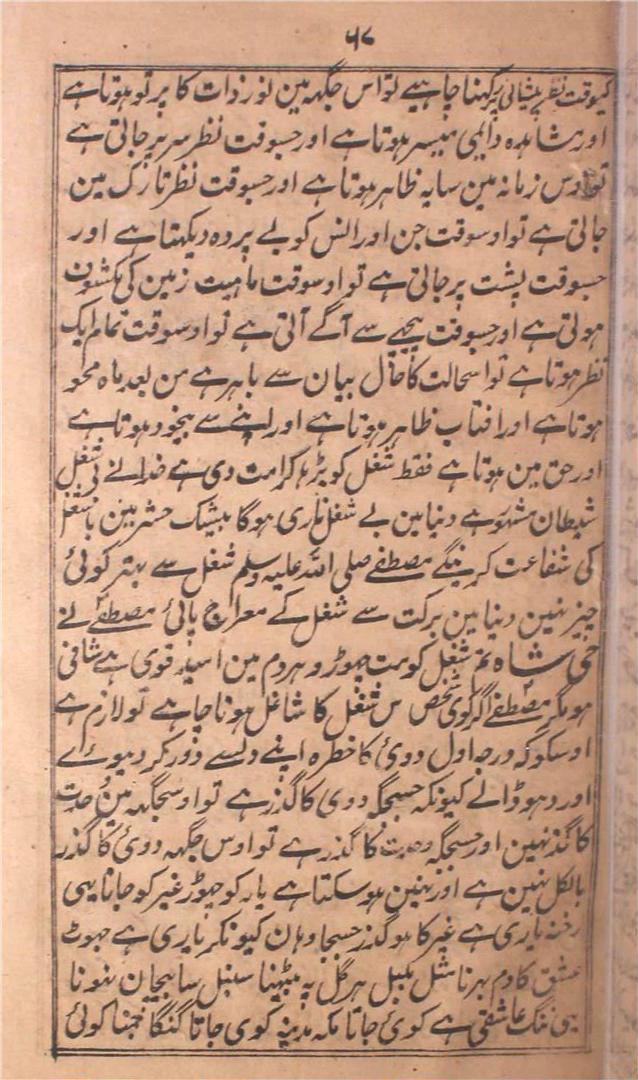 ۶۷
کیوقت نظر پیشانی پر رکہنا چاہیے تو اس جگہہ مین نور ذات کا پرتو ہوتا ہے
اور مشاہدہ دایمی میسر ہوتا ہے اور جسوقت نظر سر پر جاتی ہے
تو اوس زمانہ مین سایہ ظاہر ہوتا ہے اور جسوقت نظر تارک مین
جاتی ہے تو اوسوقت جن اور انس کو بے پردہ دیکہتا ہے اور
جسوقت پشت پر جاتی ہے تو اوسوقت ماہیت زمین کی مکشوف
ہوتی ہے اور جسوقت پیچہے سے آگے آتی ہے تو اوسوقت تمام ایک
نظر ہوتا ہے تو اسحالت کا حال بیان سے باہر ہے من بعد ماہ محو
ہوتا ہے اور افتاب ظاہر ہوتا ہے اور اپنے سے بیخود ہوتا ہے
اور حق مین ہوتا ہے فقط شغل کو بڑہا کرامت دی ہے خدا نے بی شغل
شیطان مشہور ہے دنیا مین بے شغل ناری ہوگا بیشک حشر مین با شغل
کی شفاعت کرینگے مصطفے صلی اللہ علیہ وسلم شغل سے بہتر کوئی
چیز نہین دنیا مین برکت سے شغل کے معراج پائی مصطفےٰ نے
شاہ تم شغل کو مت چہوڑو ہر دم مین امید قوی ہے شافی
ہونگے مصطفےٰ اگر کوی شخص اس شغل کا شاغل ہونا چاہے تو لازم ہے
اوسکو کہ درجہ اول دوی کا خطرہ اپنے دلسے دور کر دیوے
اور دہو ڈالے کیونکہ جسجگہ دوی کا گذر ہے تو اوسجگہہ مین وحدت
کا گذر نہین اور جسجگہ وحدت کا گذر ہے تو اوس جگہہ دوی کا گذر
بالکل نہین ہے اور نہین ہو سکتا ہے یار کو چہوڑ غیر کو جانا یہی
رخنہ یاری ہے غیر کا ہو گذر جسجا وہان کیونکر یاری ہے جہوٹ
عشق کا دم بہرنا مثل بلبل ہر گل پہ بیٹہنا سنبل سا بیجان
یہی ننگ عاشقی ہے کوی جاتا مکہ مدینہ کوی جاتا گنگا جمنا کوئی